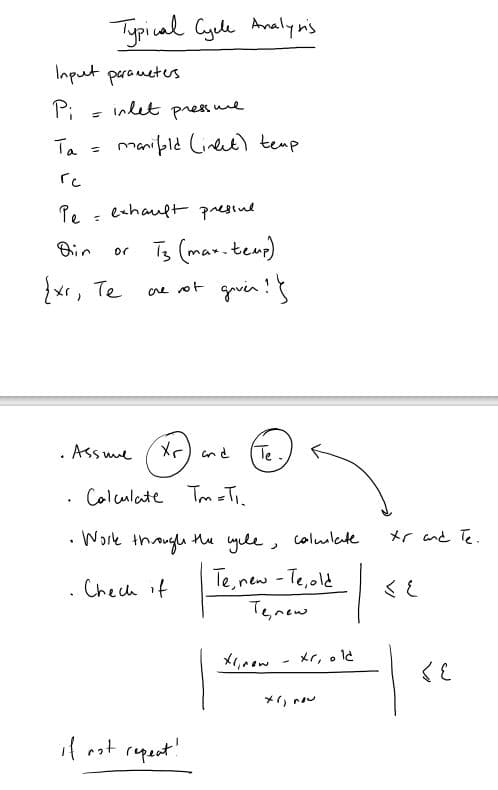 Typical Cycle Analysis
Input parameters
Pi = inlet pressure
Ta = manifold (inlet) temp
rc
Pe = exhaust pressure
Qin or T3 (max. temp)
{xr, Te are not given!}
. Assume xr and Te.
. Calculate Tm = T1.
. Work through the cycle, calculate xr and Te.
. Check if | Te,new - Te,old / Te,new | < ε
| xr,new - xr,old / xr,new | < ε
if not repeat!